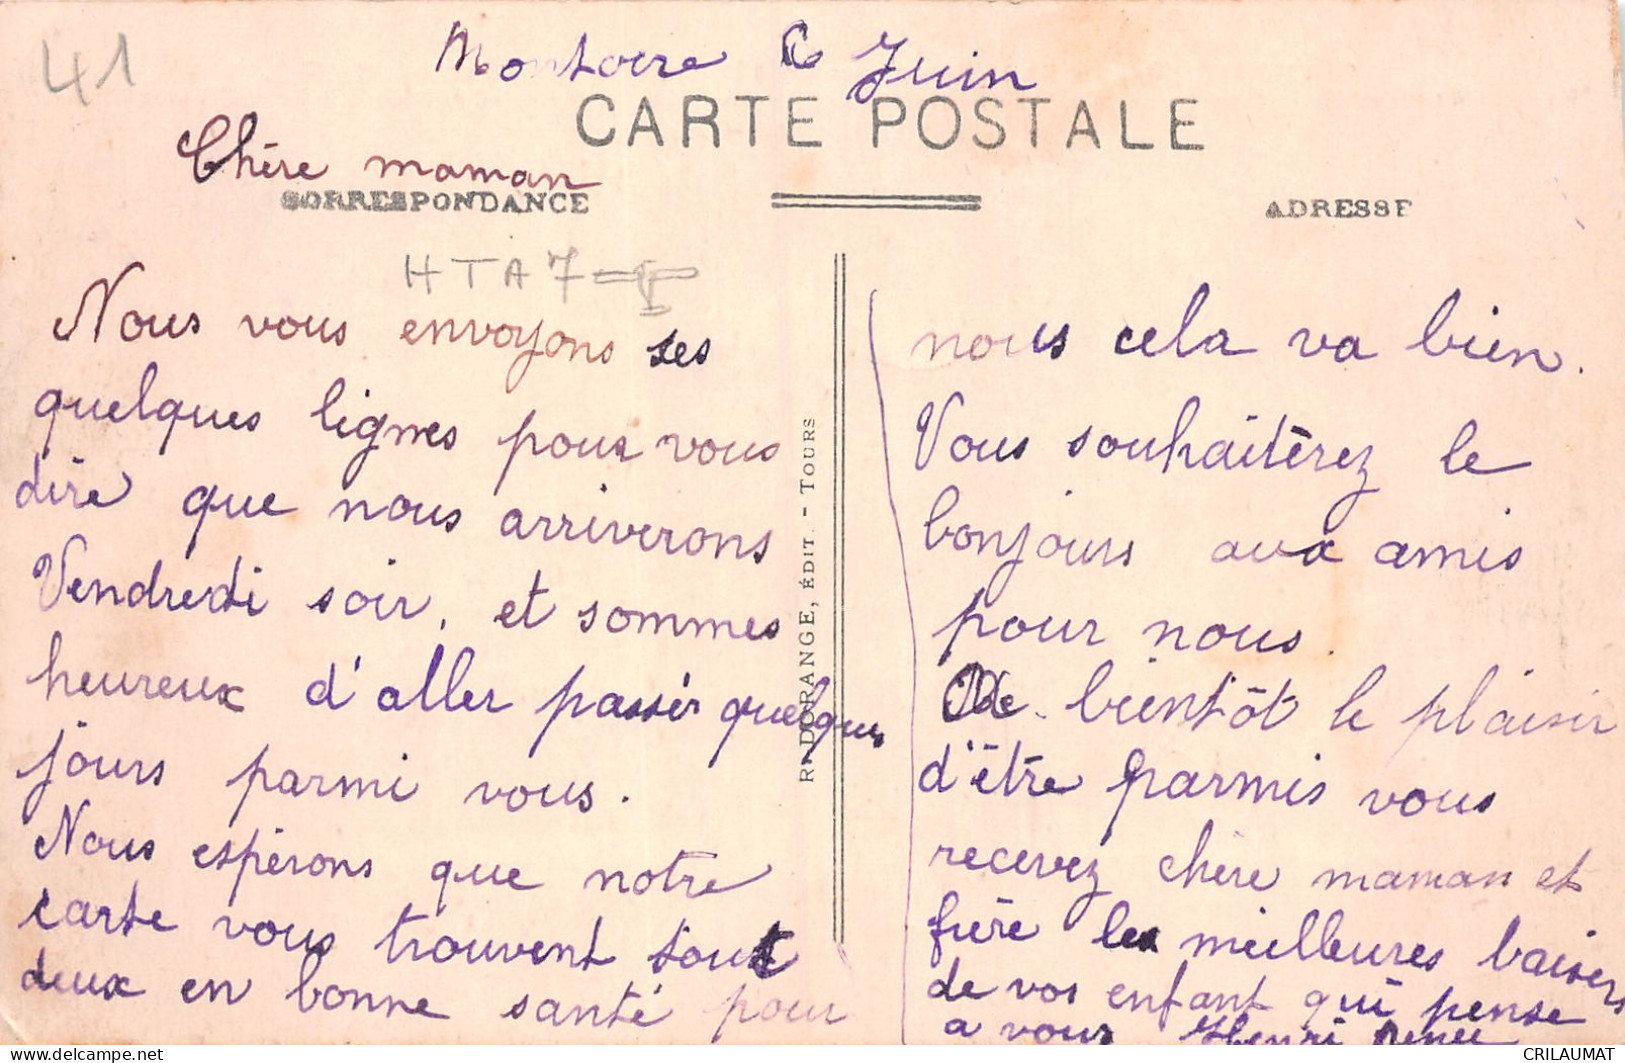 41
Montoire Juin
CARTE POSTALE
Chère maman
CORRESPONDANCE
ADRESSE
HTA7
Nous vous envoyons ses
quelques lignes pour vous
dire que nous arriverons
Vendredi soir, et sommes
heureux d'aller passer quelques
jours parmi vous.
Nous espérons que notre
carte vous trouvent tout
deux en bonne santé pour
R. DORANGE, ÉDIT. - TOURS
nous cela va bien.
Vous souhaitèrez le
bonjours aux amis
pour nous.
bientôt le plaisir
d'être parmis vous
recevez chère maman et
frère les meilleures baisers
de vos enfant qui pense
a vous Henri Renée
CRILAUMAT